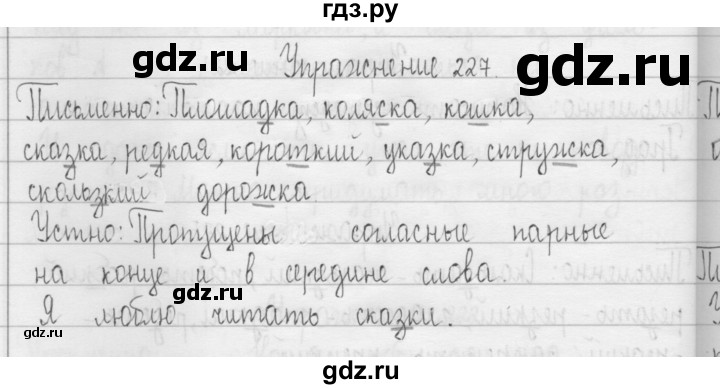 гдз.ру
gdz.ru gdz.ru
Упражнение 227.
Письменно: Площадка, коляска, кошка,
сказка, редкая, короткий, указка, стружка,
скользкий дорожка.
Устно: Пропущены согласные парные
на конце и в середине слова.
Я люблю читать сказки.
gdz.ru
gdz.ru
gdz.ru gdz.ru